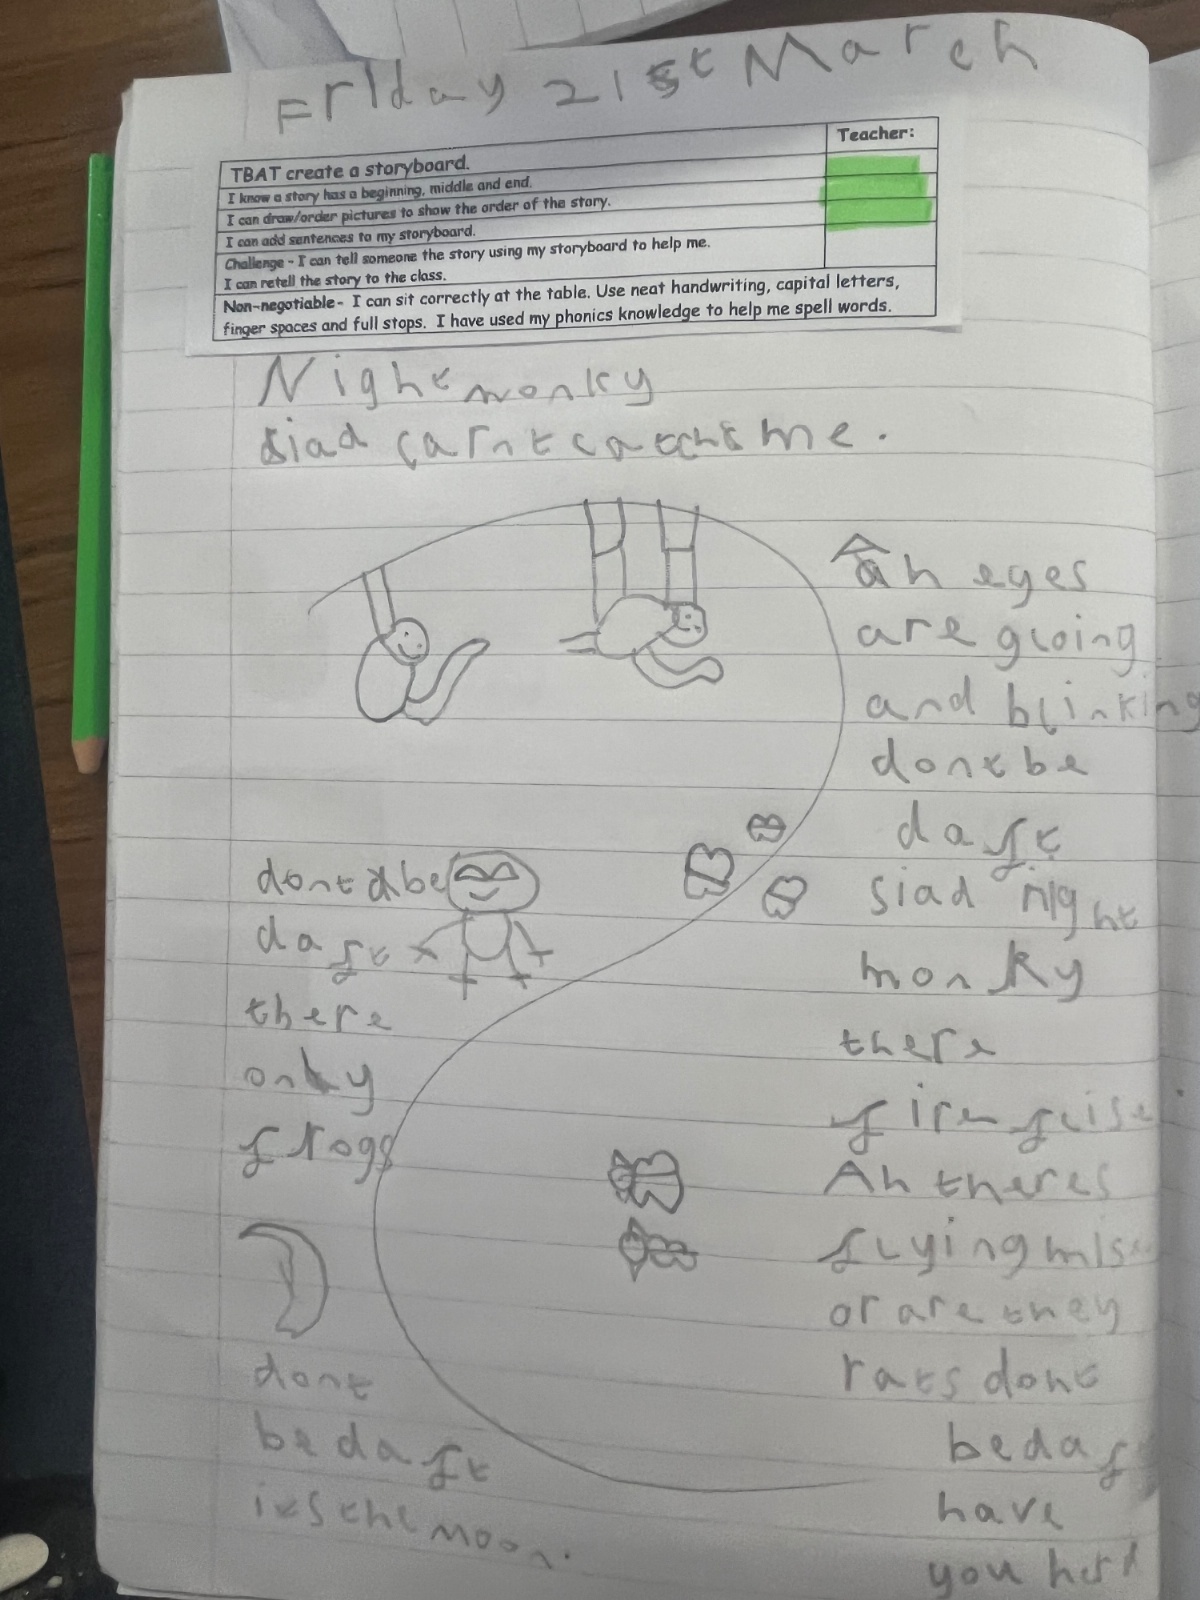 Friday 21st March
Teacher:
TBAT create a storyboard.
I know a story has a beginning, middle and end.
I can draw/order pictures to show the order of the story.
I can add sentences to my storyboard.
Challenge - I can tell someone the story using my storyboard to help me.
I can retell the story to the class.
Non-negotiable- I can sit correctly at the table. Use neat handwriting, capital letters,
finger spaces and full stops. I have used my phonics knowledge to help me spell words.
Night monky
siad carnt me.
Ah eyes
are gloing
and blinking
dont be
daft
siad night
monky
there
fire flise
Ah theres
flying
or are they
rats dont
be
have
you
dont be
daft
there
only
frogs
dont
be daft
its the moon.